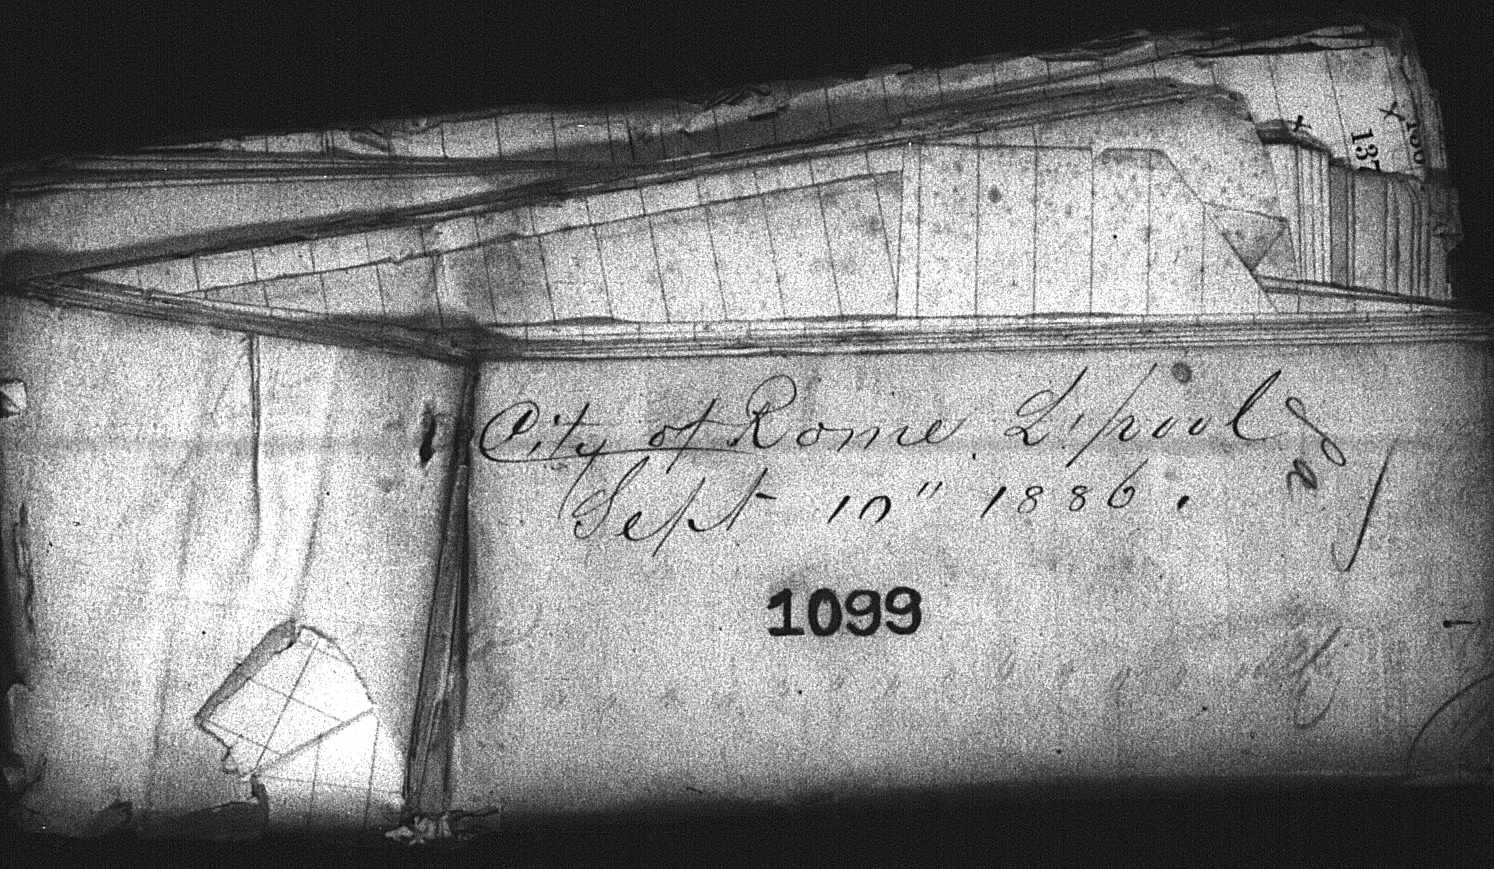 City of Rome. L'pool
Sept 10" 1886.
1099
137